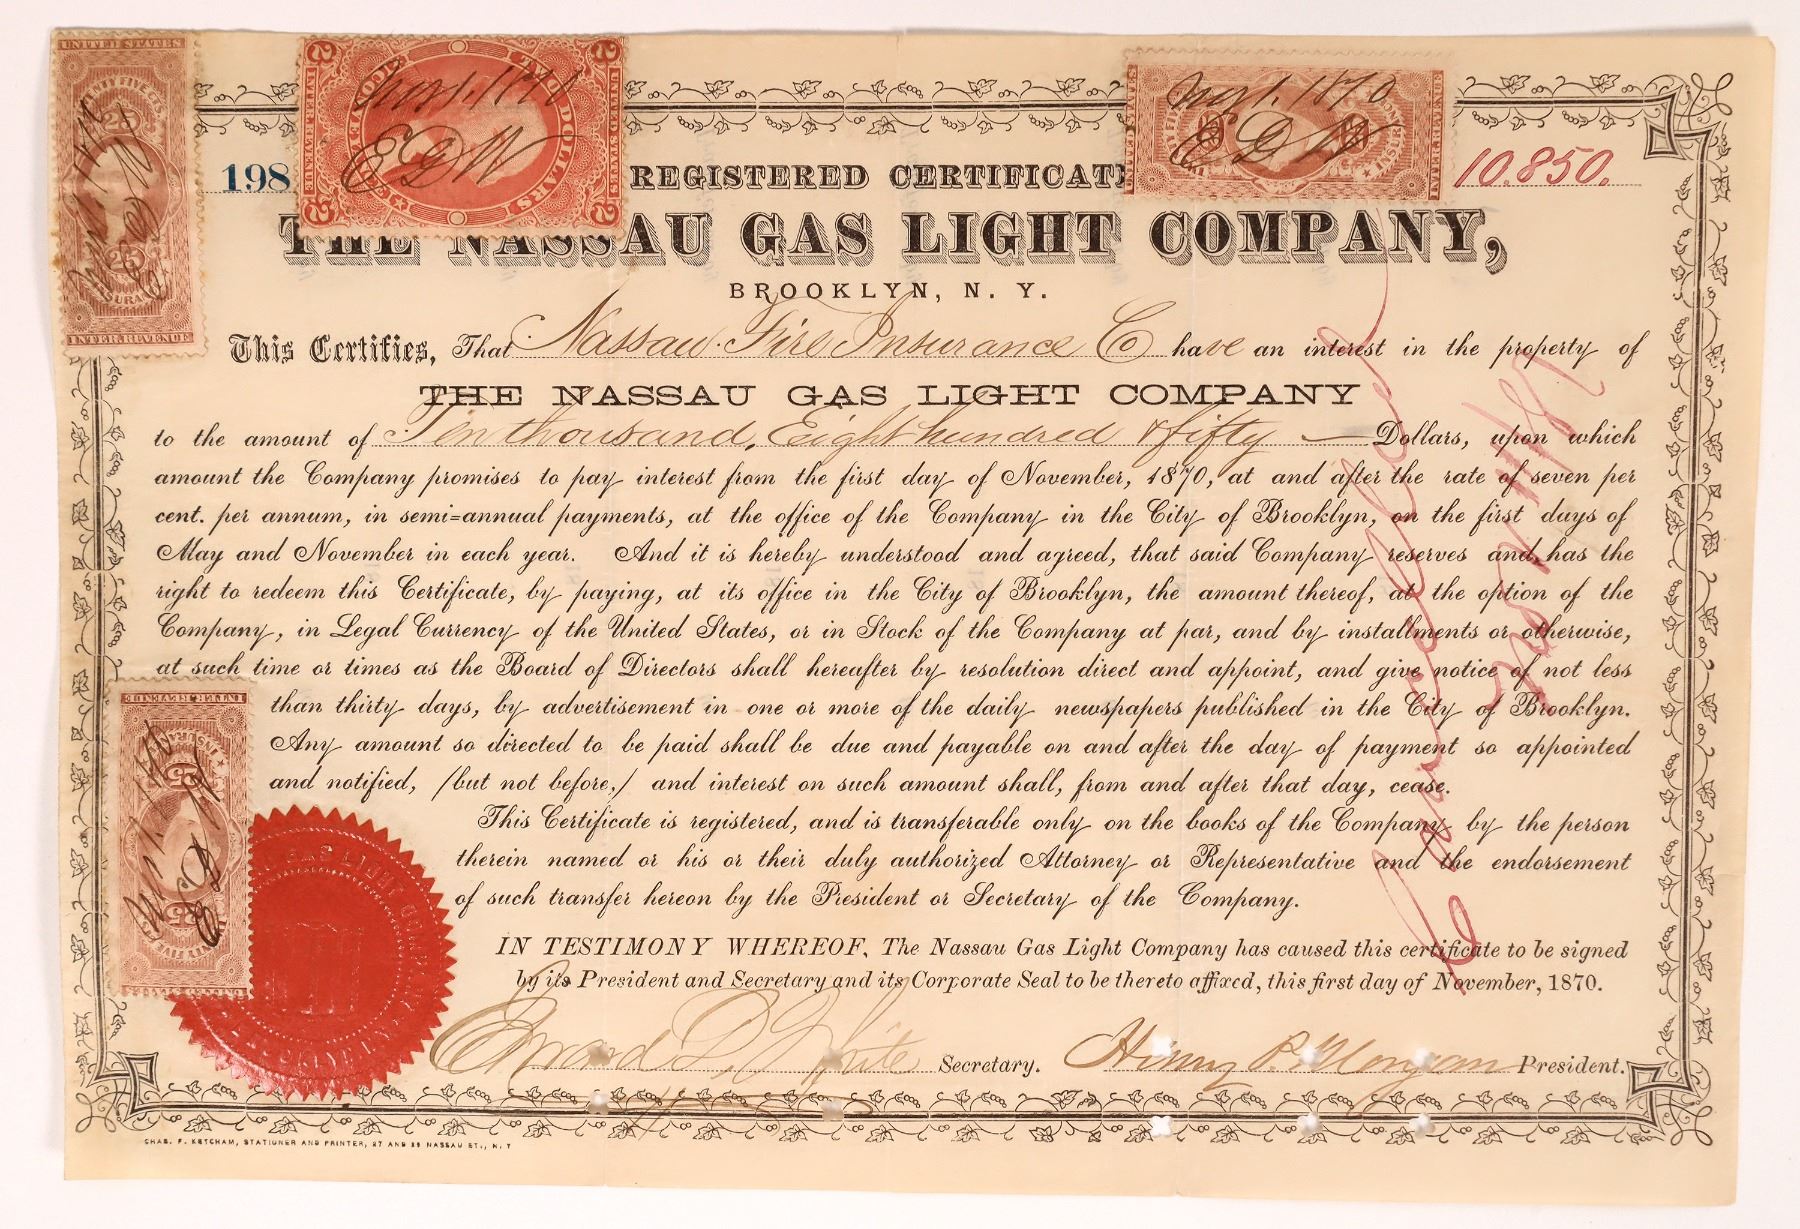 198
REGISTERED CERTIFICATE
10.850.
THE NASSAU GAS LIGHT COMPANY,
BROOKLYN, N. Y.
This Certifies, That Nassau Fire Insurance Co have an interest in the property of
THE NASSAU GAS LIGHT COMPANY
to the amount of Ten thousand, Eight hundred & fifty — Dollars, upon which
amount the Company promises to pay interest from the first day of November, 1870, at and after the rate of seven per
cent. per annum, in semi=annual payments, at the office of the Company in the City of Brooklyn, on the first days of
May and November in each year. And it is hereby understood and agreed, that said Company reserves and, has the
right to redeem this Certificate, by paying, at its office in the City of Brooklyn, the amount thereof, at the option of the
Company, in Legal Currency of the United States, or in Stock of the Company at par, and by installments or otherwise,
at such time or times as the Board of Directors shall hereafter by resolution direct and appoint, and give notice of not less
than thirty days, by advertisement in one or more of the daily newspapers published in the City of Brooklyn.
Any amount so directed to be paid shall be due and payable on and after the day of payment so appointed
and notified, /but not before,/ and interest on such amount shall, from and after that day, cease.
This Certificate is registered, and is transferable only on the books of the Company by the person
therein named or his or their duly authorized Attorney or Representative and the endorsement
of such transfer hereon by the President or Secretary of the Company.
IN TESTIMONY WHEREOF, The Nassau Gas Light Company has caused this certificate to be signed
by its President and Secretary and its Corporate Seal to be thereto affixed, this first day of November, 1870.
Edward D. White Secretary. Henry P. Morgan President.
CHAS. F. KETCHAM, STATIONER AND PRINTER, 27 AND 29 NASSAU ST., N. Y
Cancelled
UNITED STATES
TWENTY FIVE CTS
25
25
INTER. REVENUE
2 2
TWO DOLLARS
UNITED STATES
INTER. REVENUE
2 2
Nov 1. 1870
E D W
Nov 1. 1870
E D W
INTER. REVENUE
INTER. REVENUE
25
25
GAS LIGHT COMPANY